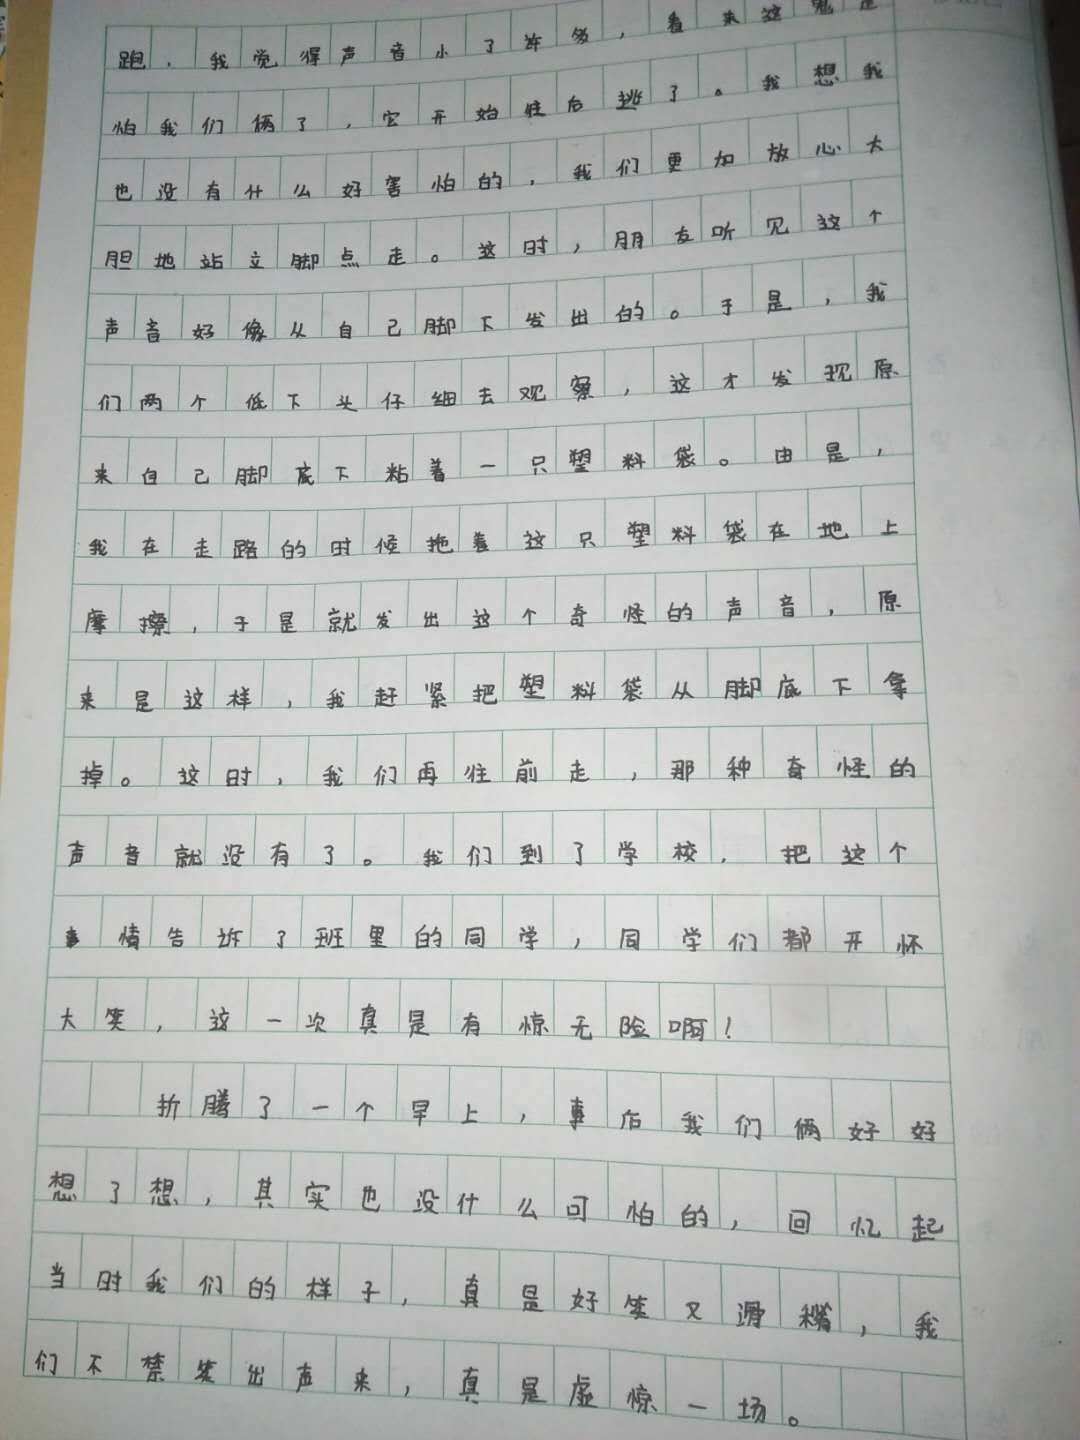 跑，我觉得声音小了许多，看来这鬼是
怕我们俩了，它开始往后逃了。我想我
也没有什么好害怕的，我们更加放心大
胆地站立脚点走。这时，朋友听见这个
声音好像从自己脚下发出的。于是，我
们两个低下头仔细去观察，这才发现原
来自己脚底下粘着一只塑料袋。由是，
我在走路的时候拖着这只塑料袋在地上
摩擦，于是就发出这个奇怪的声音，原
来是这样，我赶紧把塑料袋从脚底下拿
掉。这时，我们再往前走，那种奇怪的
声音就没有了。我们到了学校，把这个
事情告诉了班里的同学，同学们都开怀
大笑，这一次真是有惊无险啊！
折腾了一个早上，事后我们俩好好
想了想，其实也没什么可怕的，回忆起
当时我们的样子，真是好笑又滑稽，我
们不禁笑出声来，真是虚惊一场。